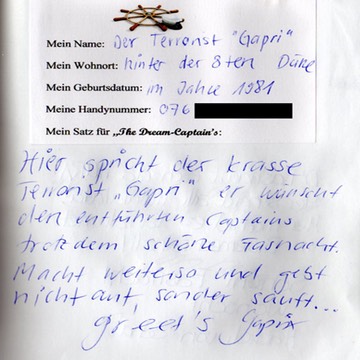 Mein Name: Der Terrorist "Gapri"
Mein Wohnort: hinter der 8ten Düne
Mein Geburtsdatum: im Jahre 1981
Meine Handynummer: 076
Mein Satz für „The Dream-Captain's:
Hier spricht der krasse
Terrorist „Gapri", er wünscht
den entführten Captains
trotzdem schöne Fasnacht.
Macht weiterso und gebt
nicht auf, sonder sauft...
Gapri